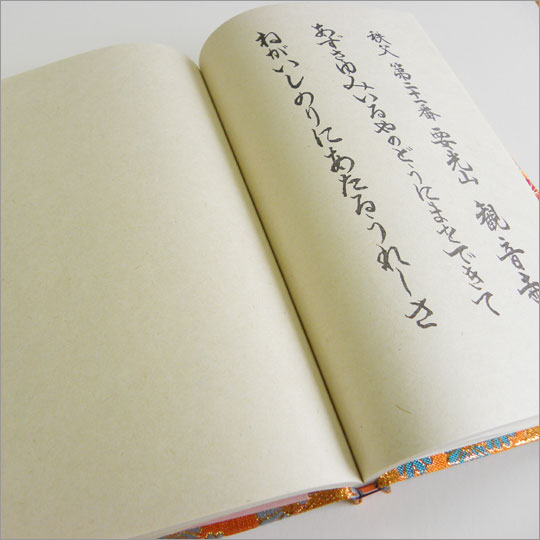 秩父 第二十一番 要光山 観音寺
あずさゆみいるやのどうにまをできて
ねがいしのりにあたるうれしさ